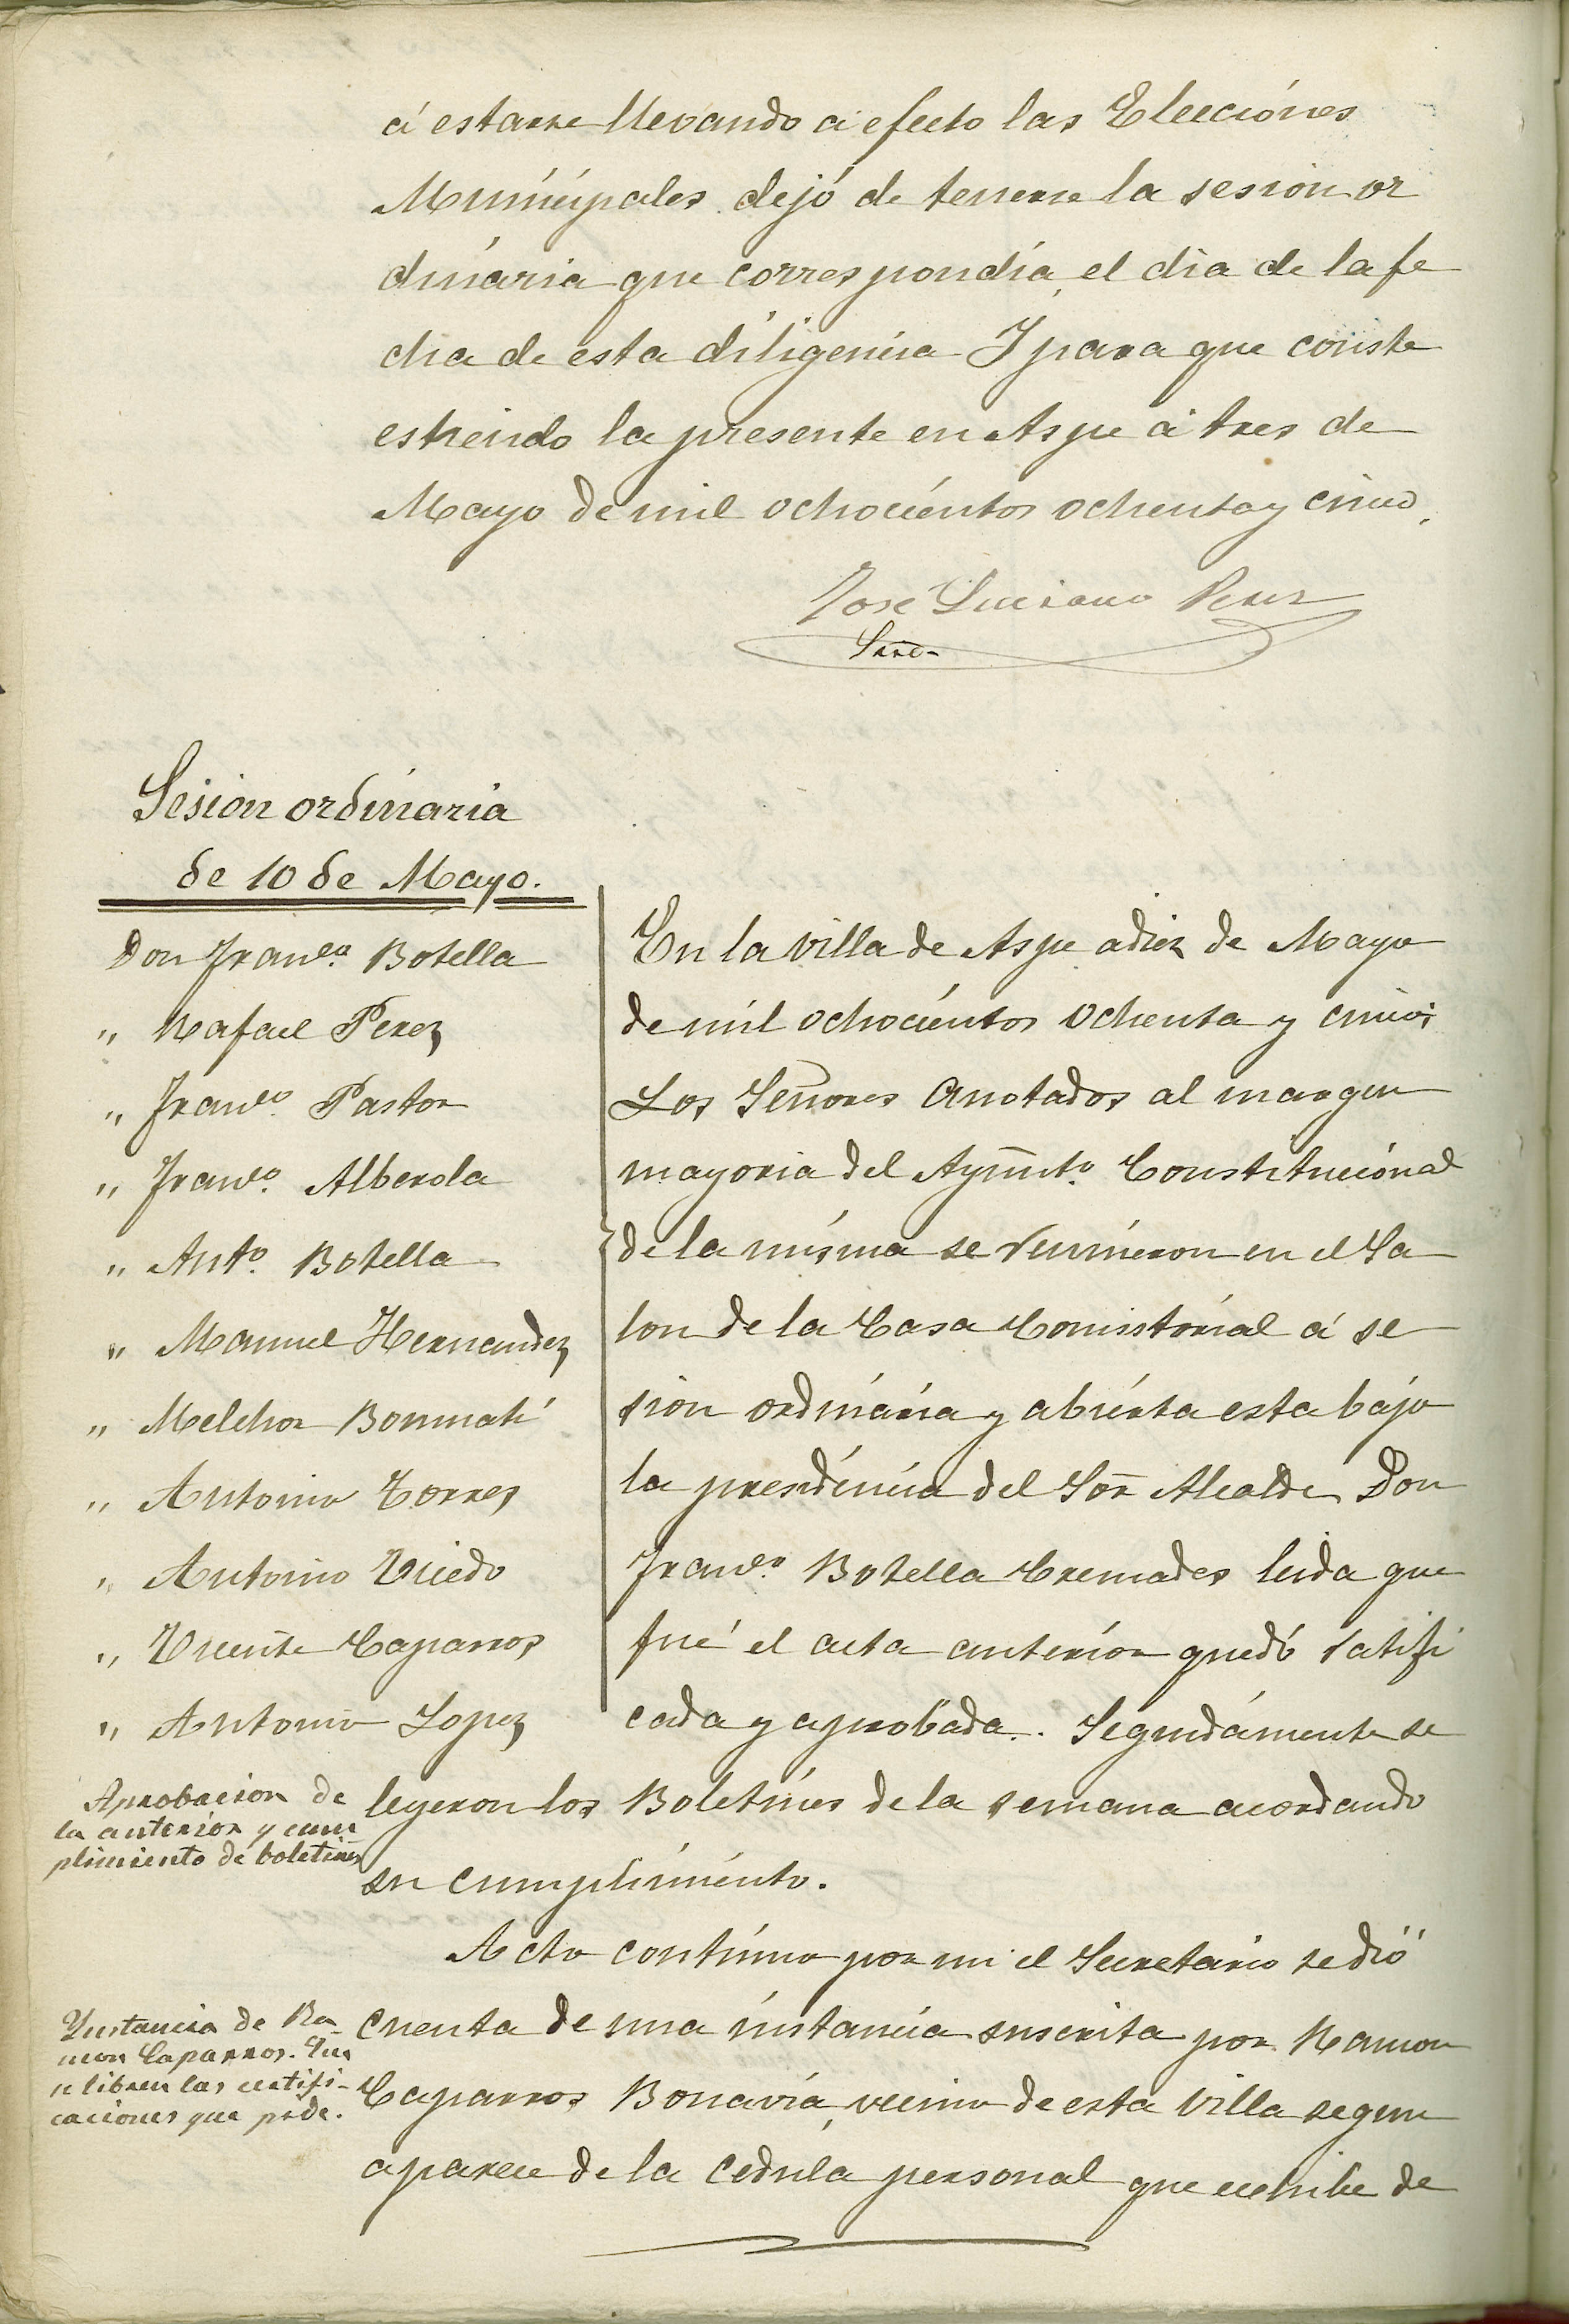 á estarse llevando á efecto las Elecciónes
Municipales dejó de tenerse la sesion or
dinária que correspondía el dia de la fe
cha de esta diligencia Y para que conste
estiendo la presente en Aspe á tres de
Mayo de mil ochocientos ochenta y cinco.
José Luciano Perez
Srio
Sesion ordinaria
de 10 de Mayo.
Don Franco. Botella
" Rafael Perez
" Franco. Pastor
" Franco. Alberola
" Anto. Botella
" Manuel Hernandez
" Melchor Bonmatí
" Antonio Torres
" Antonio Uiedo
" Vicente Caparros
" Antonio Lopez
En la villa de Aspe a diez de Mayo
de mil ochocientos ochenta y cinco;
Los Señores Anotados al margen
mayoria del Ayunto. Constitucional
de la misma se reunieron en el Sa
lon de la Casa Consistorial á se
sion ordinária y abierta esta bajo
la presidencia del Sor Alcalde Don
Franco. Botella Cremades leida que
fué el acta anterior quedó ratifi
cada y aprobada. Seguidamente se
leyeron los Boletines de la semana acordando
su cumplimiento.
Aprobacion de
la anterior y cum
plimiento de boletines
Acto contínuo por mi el Secretario se dió
cuenta de una instancia suscrita por Ramon
Caparros Bonavía, vecino de esta Villa segun
aparece de la cedula personal que exhibe de
Ynstancia de Ra-
mon Caparros. Que
se libren las certifi-
caciones que pide.